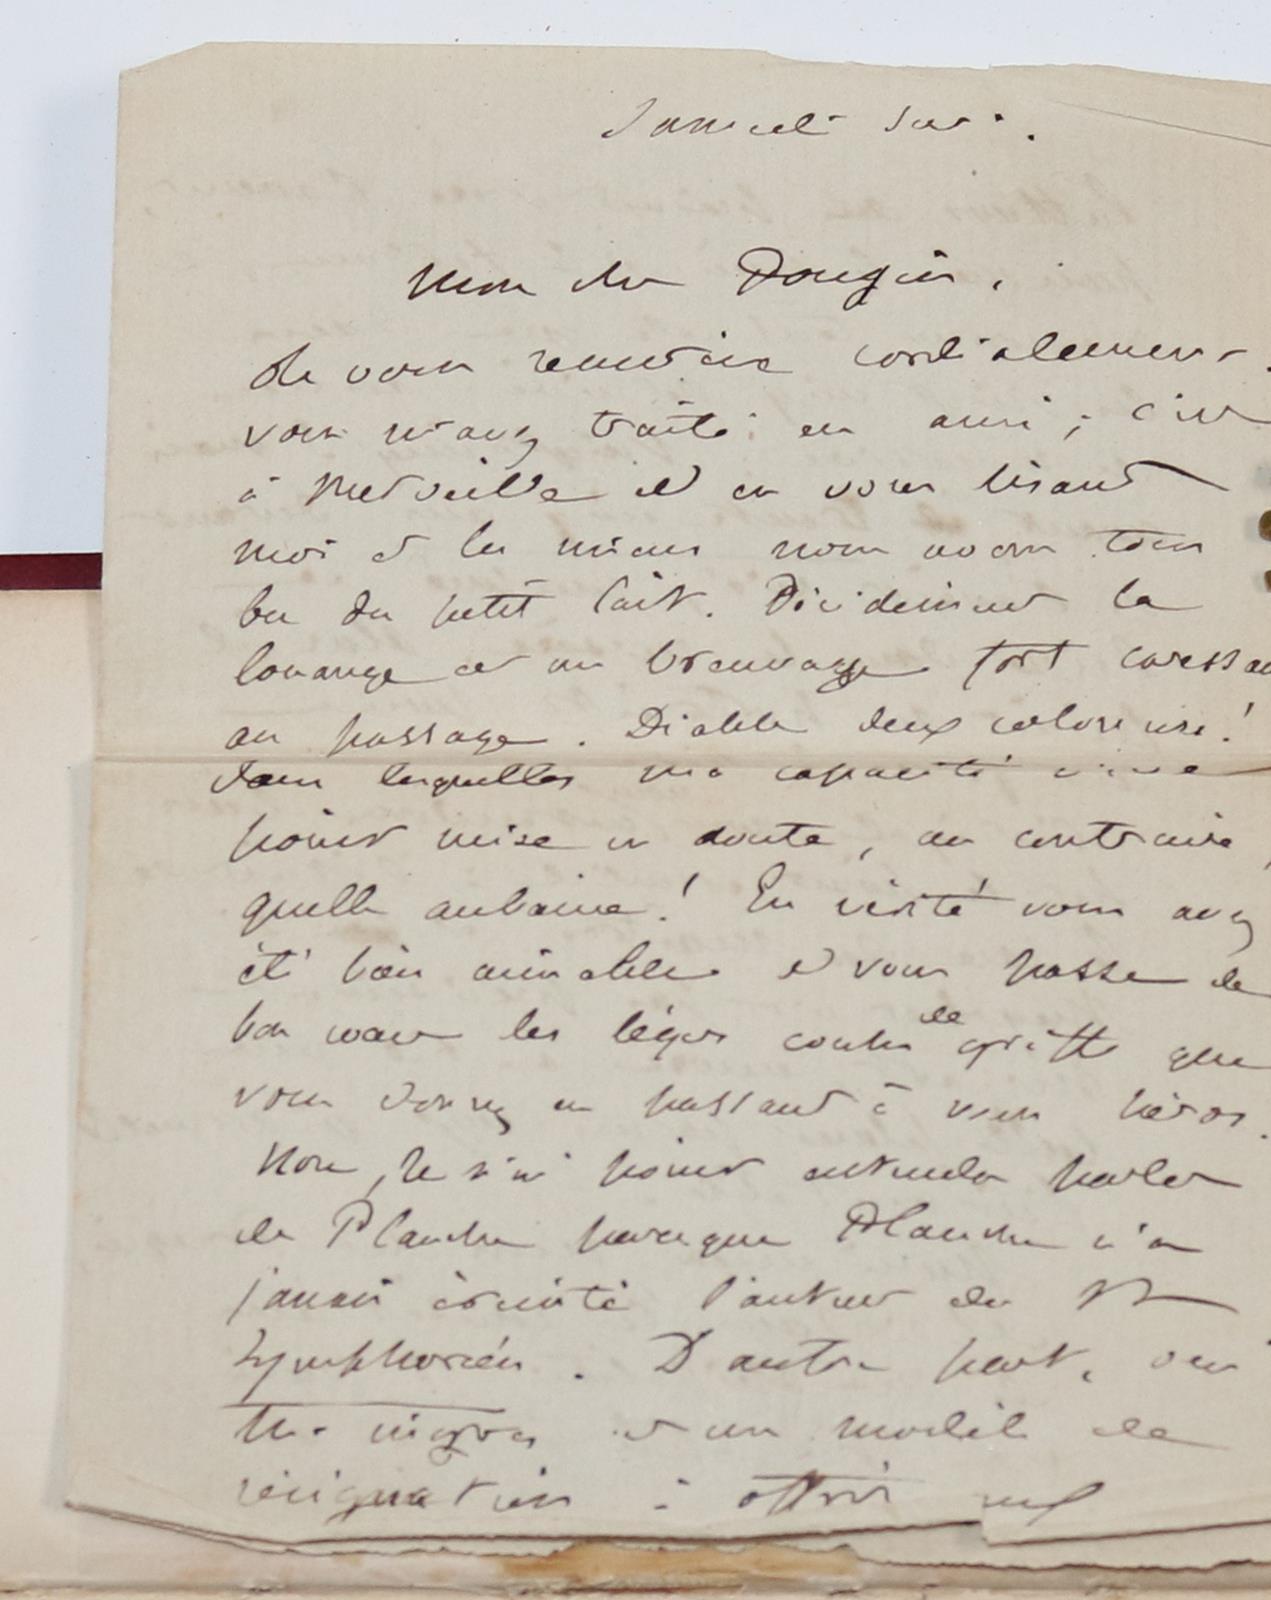 Samedi soir.
Mon cher Pougin,
Je vous remercie cordialement.
vous m'avez traité en ami ; c'est
à merveille et en vous lisant
moi et les miens nous avons tous
bu du petit lait. Décidément la
louange est un breuvage fort caressan
au passage. Diable deux colonnes !
dans lesquelles ma capacité n'est
point mise en doute, au contraire,
quelle aubaine ! En vérité vous avez
été bien aimable et vous passe de
bon coeur les légers coups de griffe que
vous donnez en passant à mon héros.
Non, je n'ai point entendu parler
de Planche parce que Planche n'a
jamais éreinté l'auteur du St
Symphorien. D'autre part,
Mr Ingres est un modèle de
résignation à offrir aux